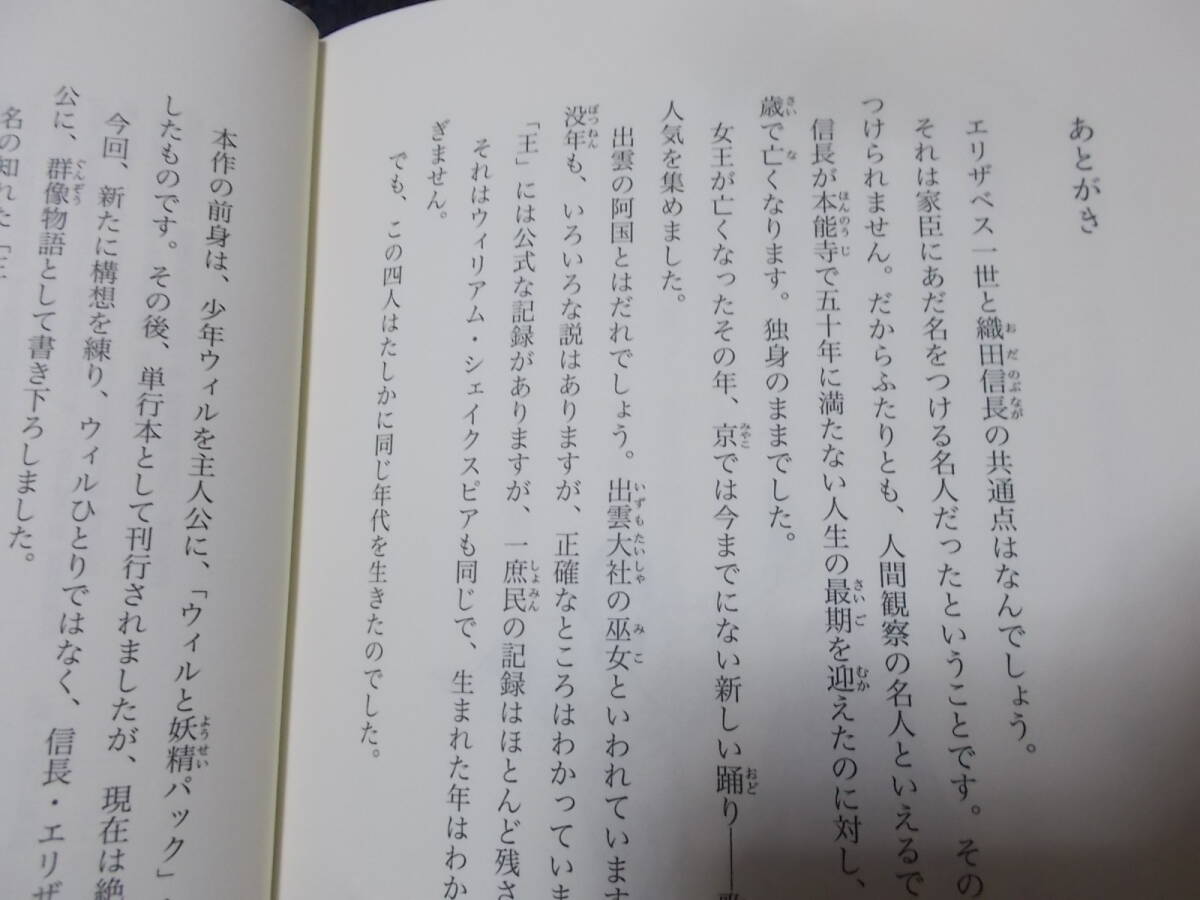 あとがき
エリザベス一世と織田信長の共通点はなんでしょう。
それは家臣にあだ名をつける名人だったということです。その
つけられません。だからふたりとも、人間観察の名人といえるで
信長が本能寺で五十年に満たない人生の最期を迎えたのに対し、
歳で亡くなります。独身のままでした。
女王が亡くなったその年、京では今までにない新しい踊り――
人気を集めました。
出雲の阿国とはだれでしょう。出雲大社の巫女といわれています
没年も、いろいろな説はありますが、正確なところはわかっていま
「王」には公式な記録がありますが、一庶民の記録はほとんど残さ
それはウィリアム・シェイクスピアも同じで、生まれた年はわか
ぎません。
でも、この四人はたしかに同じ年代を生きたのでした。
本作の前身は、少年ウィルを主人公に、「ウィルと妖精パック」
したものです。その後、単行本として刊行されましたが、現在は絶
今回、新たに構想を練り、ウィルひとりではなく、信長・エリザ
公に、群像物語として書き下ろしました。
名の知れた「王